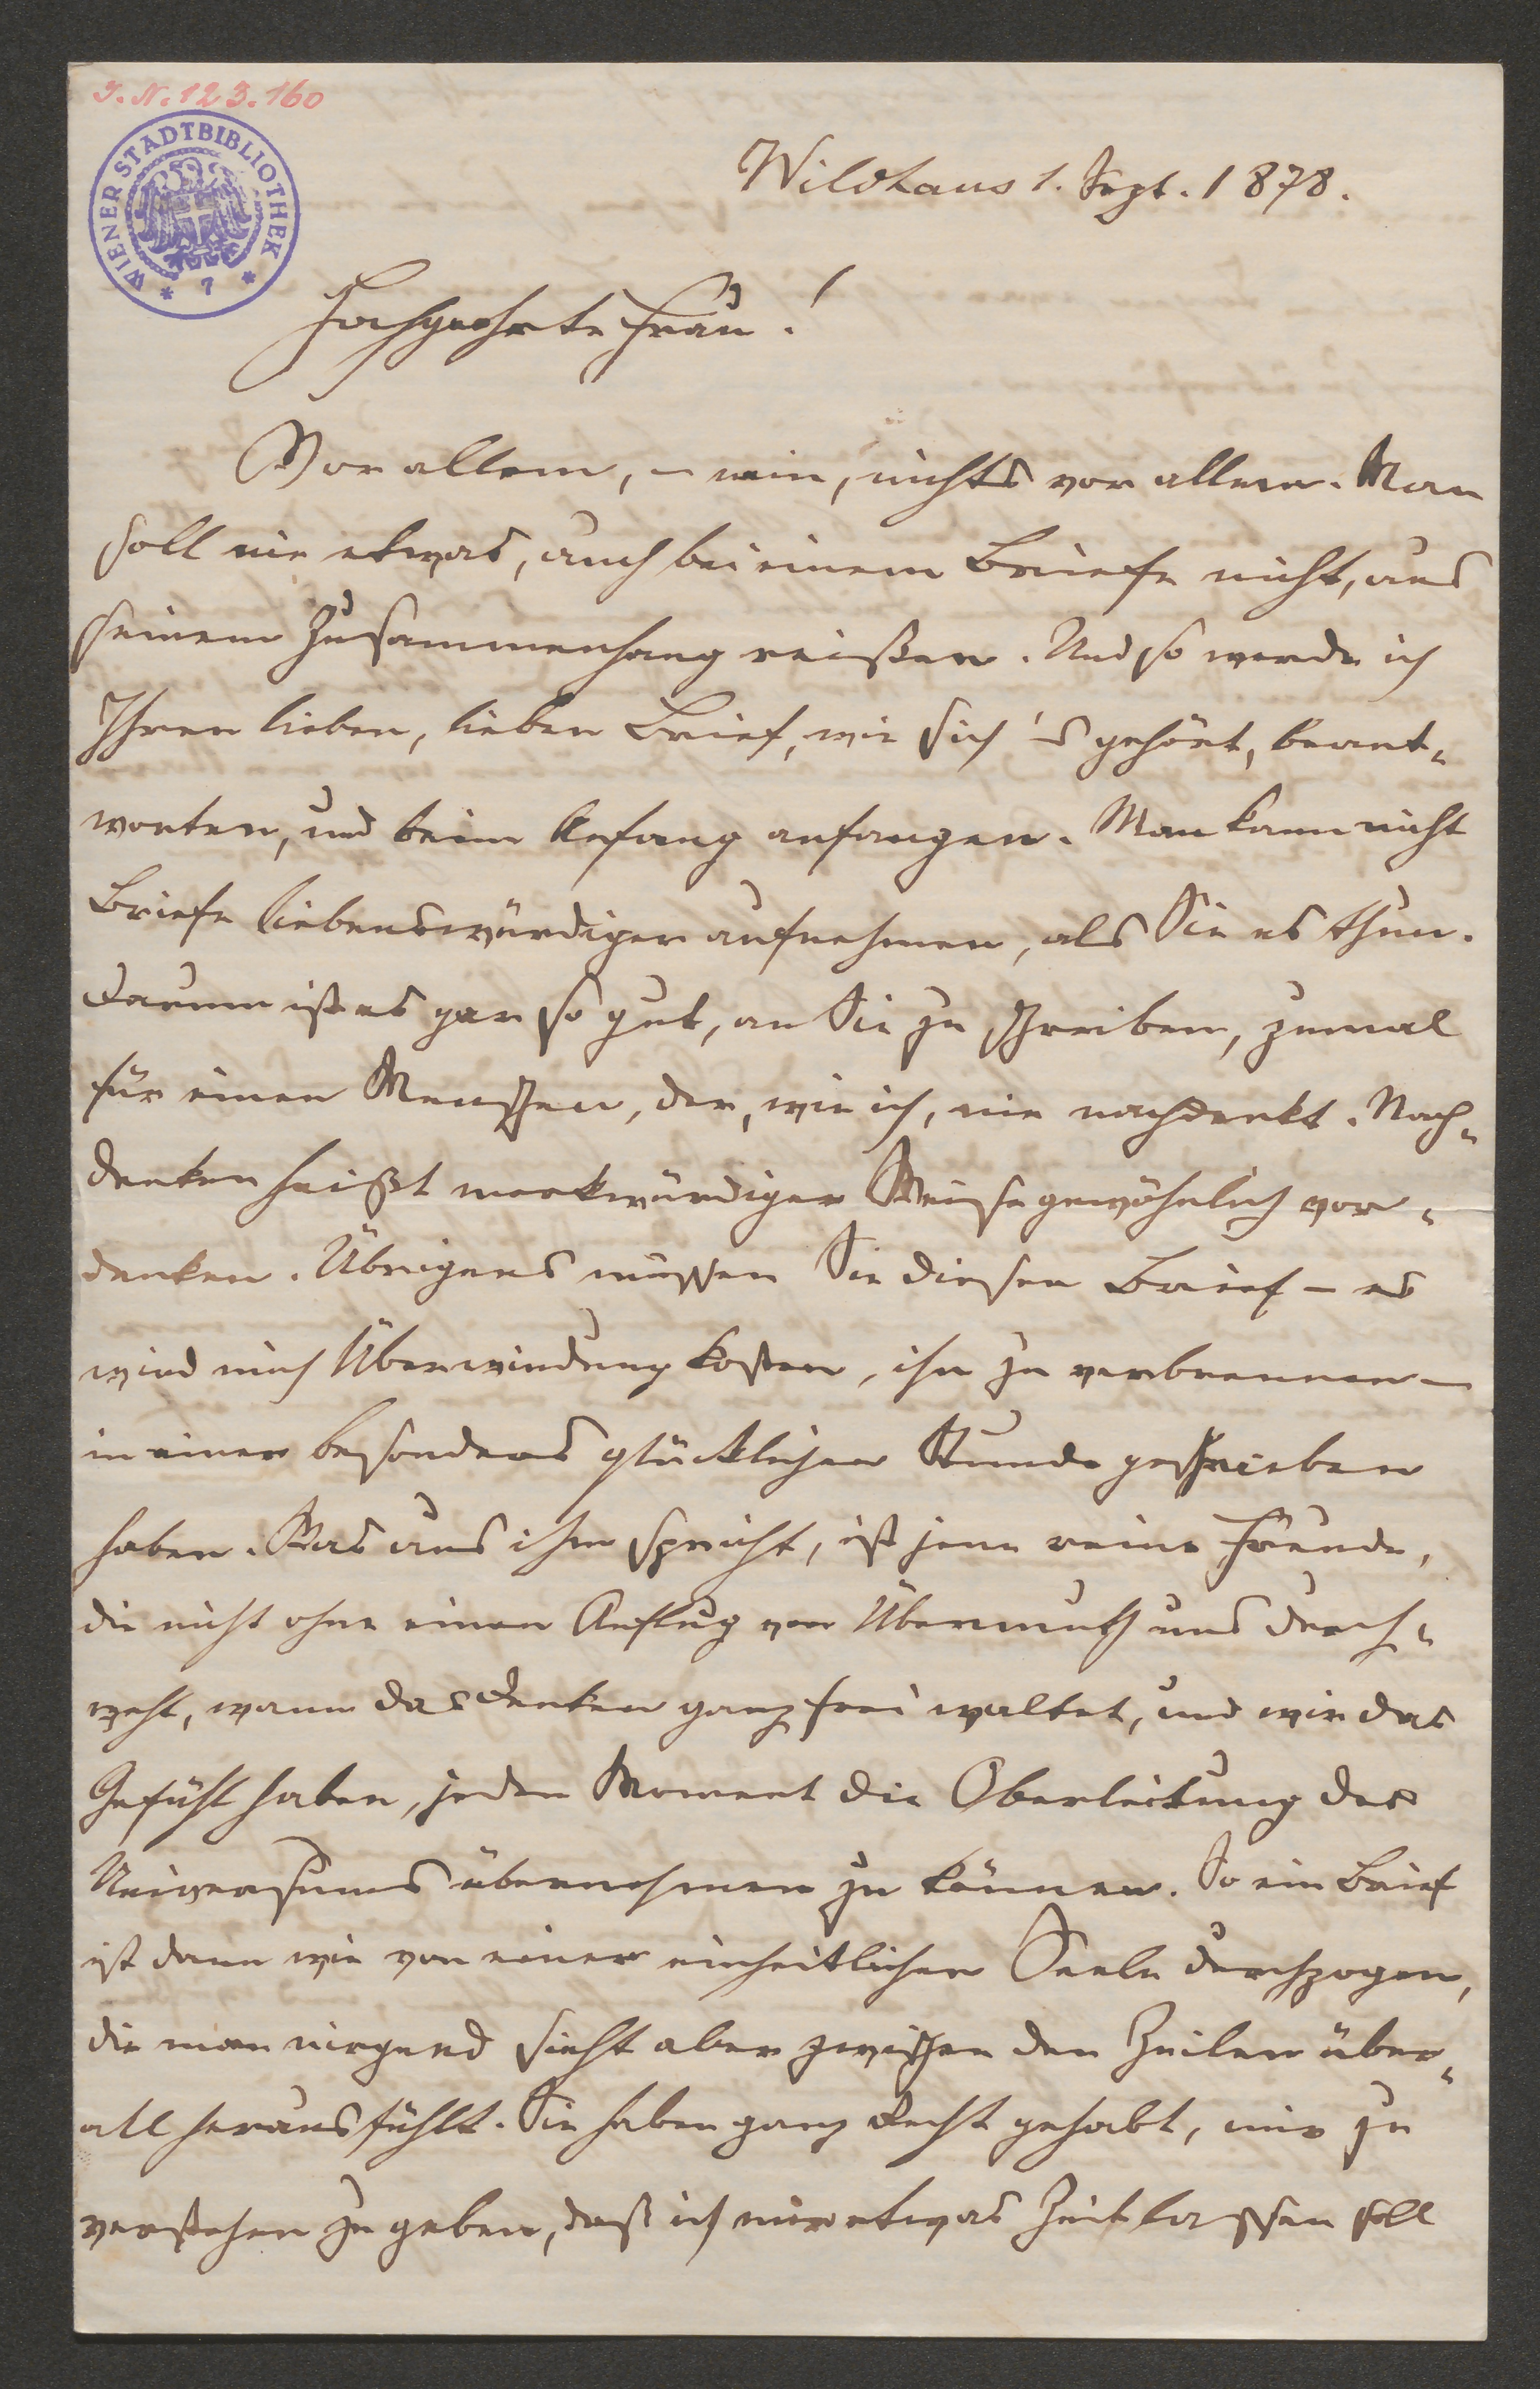 I. N. 123.160
WIENER STADTBIBLIOTHEK
* 7 *
Wildhaus 1. Sept. 1878.
Hochgeehrte Frau!
Vor allem, – nein, nichts vor allem. Man
soll nie etwas, auch bei einem Briefe nicht, aus
seinem Zusammenhang reißen. Und so werde ich
Ihren lieben, lieben Brief, wie sich's gehört, beant-
worten, und beim Anfang anfangen. Man kann nicht
Briefe liebenswürdiger aufnehmen, als Sie es thun.
Darum ist es gar so gut, an Sie zu schreiben, zumal
für einen Menschen, der, wie ich, nie nachdenkt. Nach-
denken heißt merkwürdiger Weise gewöhnlich vor-
denken. Übrigens müssen Sie diesen Brief – es
wird mich Überwindung kosten, ihn zu verbrennen –
in einer besonders glücklichen Stunde geschrieben
haben. Was aus ihm spricht, ist jene reine Freude,
die nicht ohne einen Anflug von Übermuth uns durch-
weht, wann das Denken ganz frei waltet, und wir das
Gefühl haben, jeden Moment die Oberleitung des
Universums übernehmen zu können. So ein Brief
ist dann wie von einer einheitlichen Seele durchzogen,
die man nirgend sieht aber zwischen den Zeilen über-
all herausfühlt. Sie haben ganz Recht gehabt, mir zu
verstehen zu geben, daß ich mir etwas Zeit lassen soll